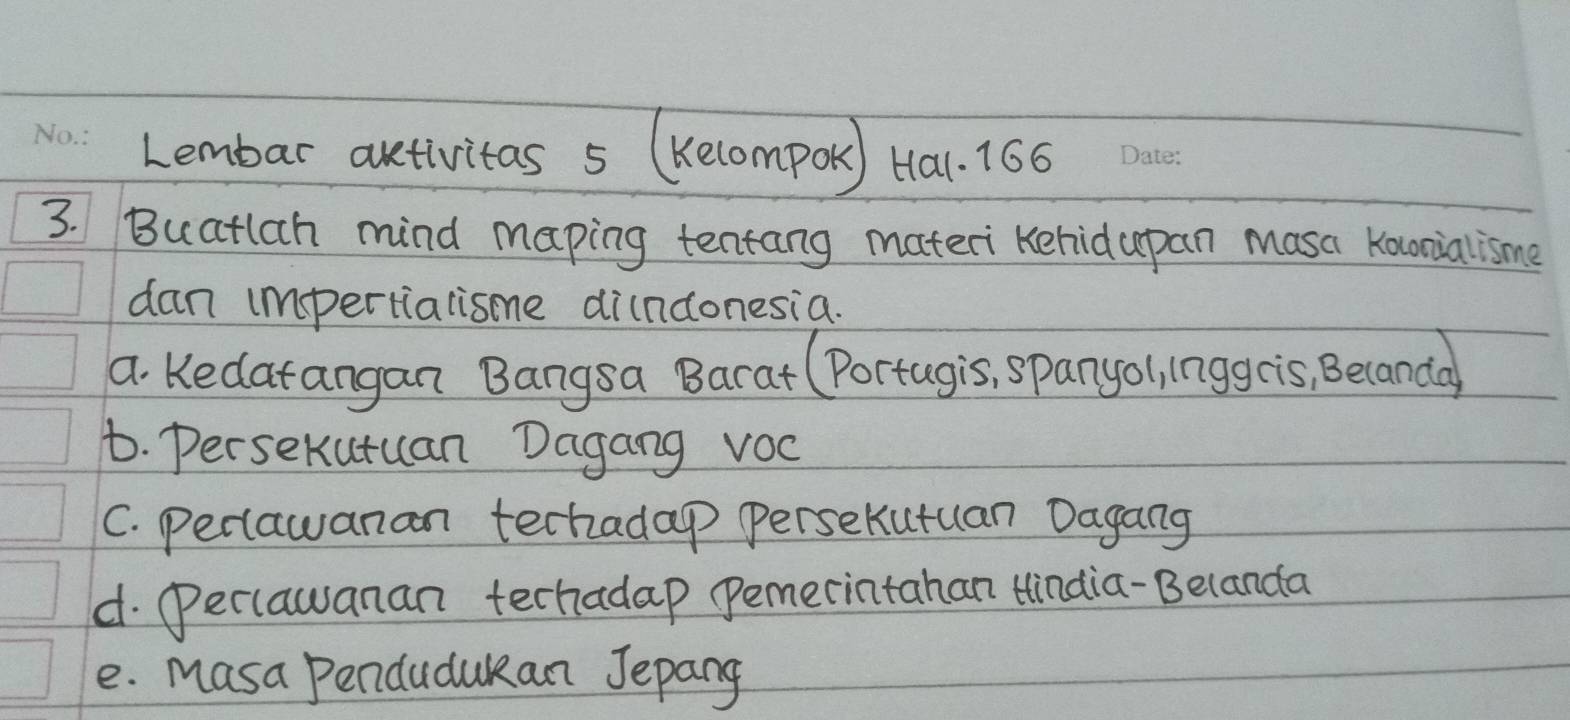 No.: Lembar aktivitas 5 (Kelompok) Hal. 166 Date:
3. Buatlah mind maping tentang materi Kehidupan masa Kolonialisme
dan impertialisme diindonesia.
a. Kedatangan Bangsa Barat (Portugis, Spanyol, inggris, Belanda)
b. Persekutuan Dagang VOC
c. Perlawanan terhadap Persekutuan Dagang
d. Perlawanan terhadap Pemerintahan Hindia-Belanda
e. Masa Pendudukan Jepang